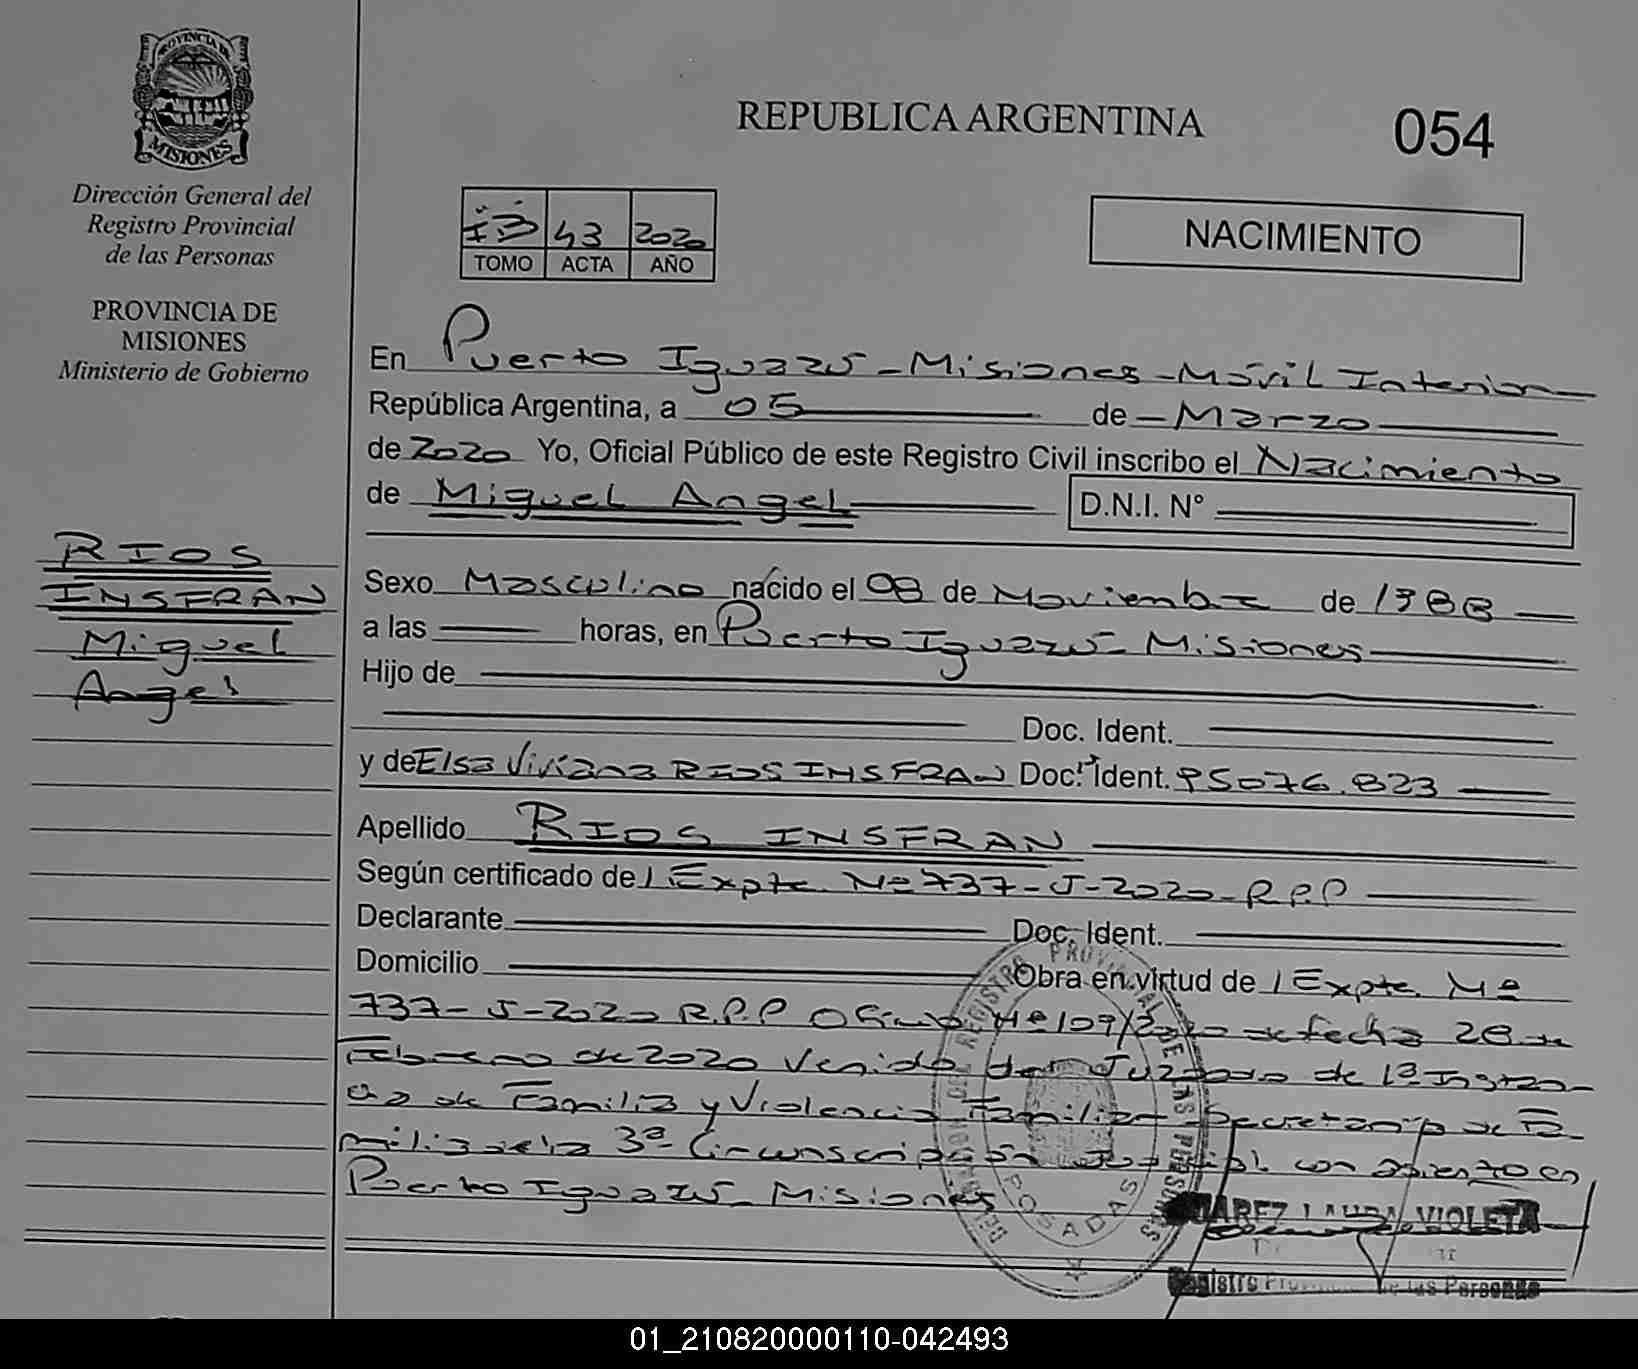 PROVINCIA DE
MISIONES
Dirección General del
Registro Provincial
de las Personas
PROVINCIA DE
MISIONES
Ministerio de Gobierno
RIOS
INSFRAN
Miguel
Angel
REPUBLICA ARGENTINA
054
43 2020
TOMO ACTA AÑO
NACIMIENTO
En Puerto Iguazú - Misiones - Móvil Interior
República Argentina, a 05 de - Marzo
de 2020 Yo, Oficial Público de este Registro Civil inscribo el Nacimiento
de Miguel Angel D.N.I. N°
Sexo Masculino nacido el 08 de Noviembre de 1988
a las horas, en Puerto Iguazú - Misiones
Hijo de
Doc. Ident.
y de Elsa Viviana RIOS INSFRAN Doc. Ident. 95076.823
Apellido RIOS INSFRAN
Según certificado de / Expte. Nº 737-J-2020-R.P.P
Declarante Doc. Ident.
Domicilio Obra en virtud de / Expte. Nº
737-J-2020 R.P.P Oficio Nº 109/2020 de fecha 28 de
Febrero de 2020 Venido del Juzgado de 1ª Instan-
cia de Familia y Violencia Familiar Secretaría de Fa-
milia de la 3ª Circunscripción Judicial con asiento en
Puerto Iguazú - Misiones
POSADAS
JUAREZ LAURA VIOLETA
Registro Provincial de las Personas
01_210820000110-042493